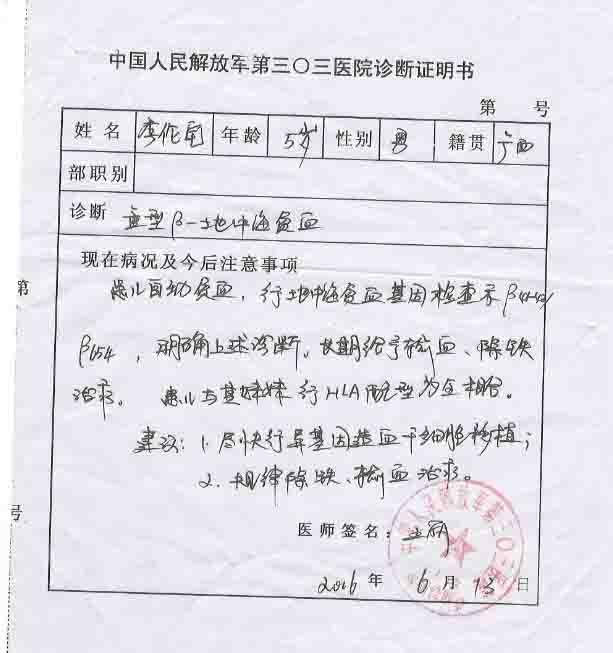 中国人民解放军第三〇三医院诊断证明书
第 号
姓名 年龄 5岁 性别 男 籍贯 广西
部职别
诊断 重型β-地中海贫血
现在病况及今后注意事项
患儿自幼贫血，行地中海贫血基因检查示β41-42/
β654，明确上述诊断。长期给予输血、除铁
治疗。患儿与其妹妹行HLA配型为全相合。
建议：1.尽快行异基因造血干细胞移植；
2.规律除铁、输血治疗。
医师签名：
2016年 6月 13日
第
号